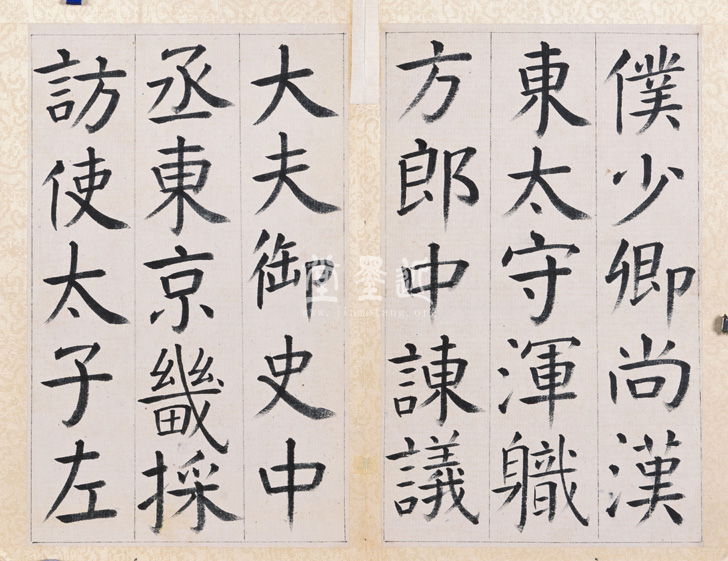 僕少卿尚漢
東太守渾職
方郎中諫議
大夫御史中
丞東京畿採
訪使太子左
近墨堂
www.jinmotang.org